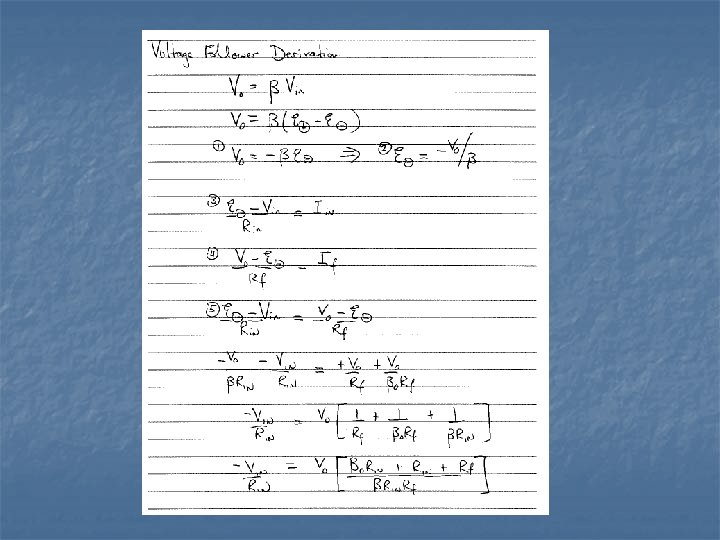 Voltage Follower Derivation
V₀ = β Vin
V₀ = β(ε⊕ - ε⊖)
① V₀ = -βε⊖ ⇒ ② ε⊖ = -V₀/β
③ (ε⊖ - Vin)/Rin = IIN
④ (V₀ - ε⊖)/Rf = If
⑤ (ε⊖ - Vin)/RIN = (V₀ - ε⊖)/Rf
-V₀/βRIN - VIN/RIN = +V₀/Rf + V₀/β₀Rf
-VIN/RIN = V₀ [1/Rf + 1/β₀Rf + 1/βRIN]
-VIN/RIN = V₀ [(β₀RIN + RIN + Rf)/βRINRf]